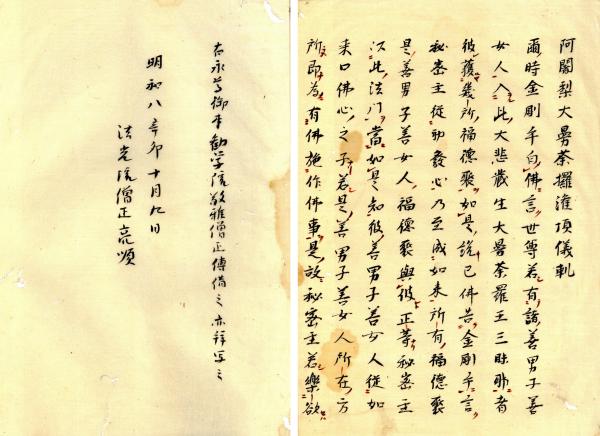 阿闍梨大曼荼攞灌頂儀軌
爾時金剛手白佛言世尊若有諸善男子善
女人入此大悲藏生大曼荼羅王三昧耶者
彼獲幾所福德聚如是說已佛告金剛手言
秘密主從初發心乃至成如来所有福德聚
是善男子善女人福德聚與彼正等秘密主
以此法門當如是知彼善男子善女人從如
来口佛心之子若是善男子善女人所在方
所即為有佛施作佛事是故秘密主若樂欲
右永 御本勧学院 僧正傳借之亦拜写之
明和八辛卯十月九日
法 院僧正亮頌